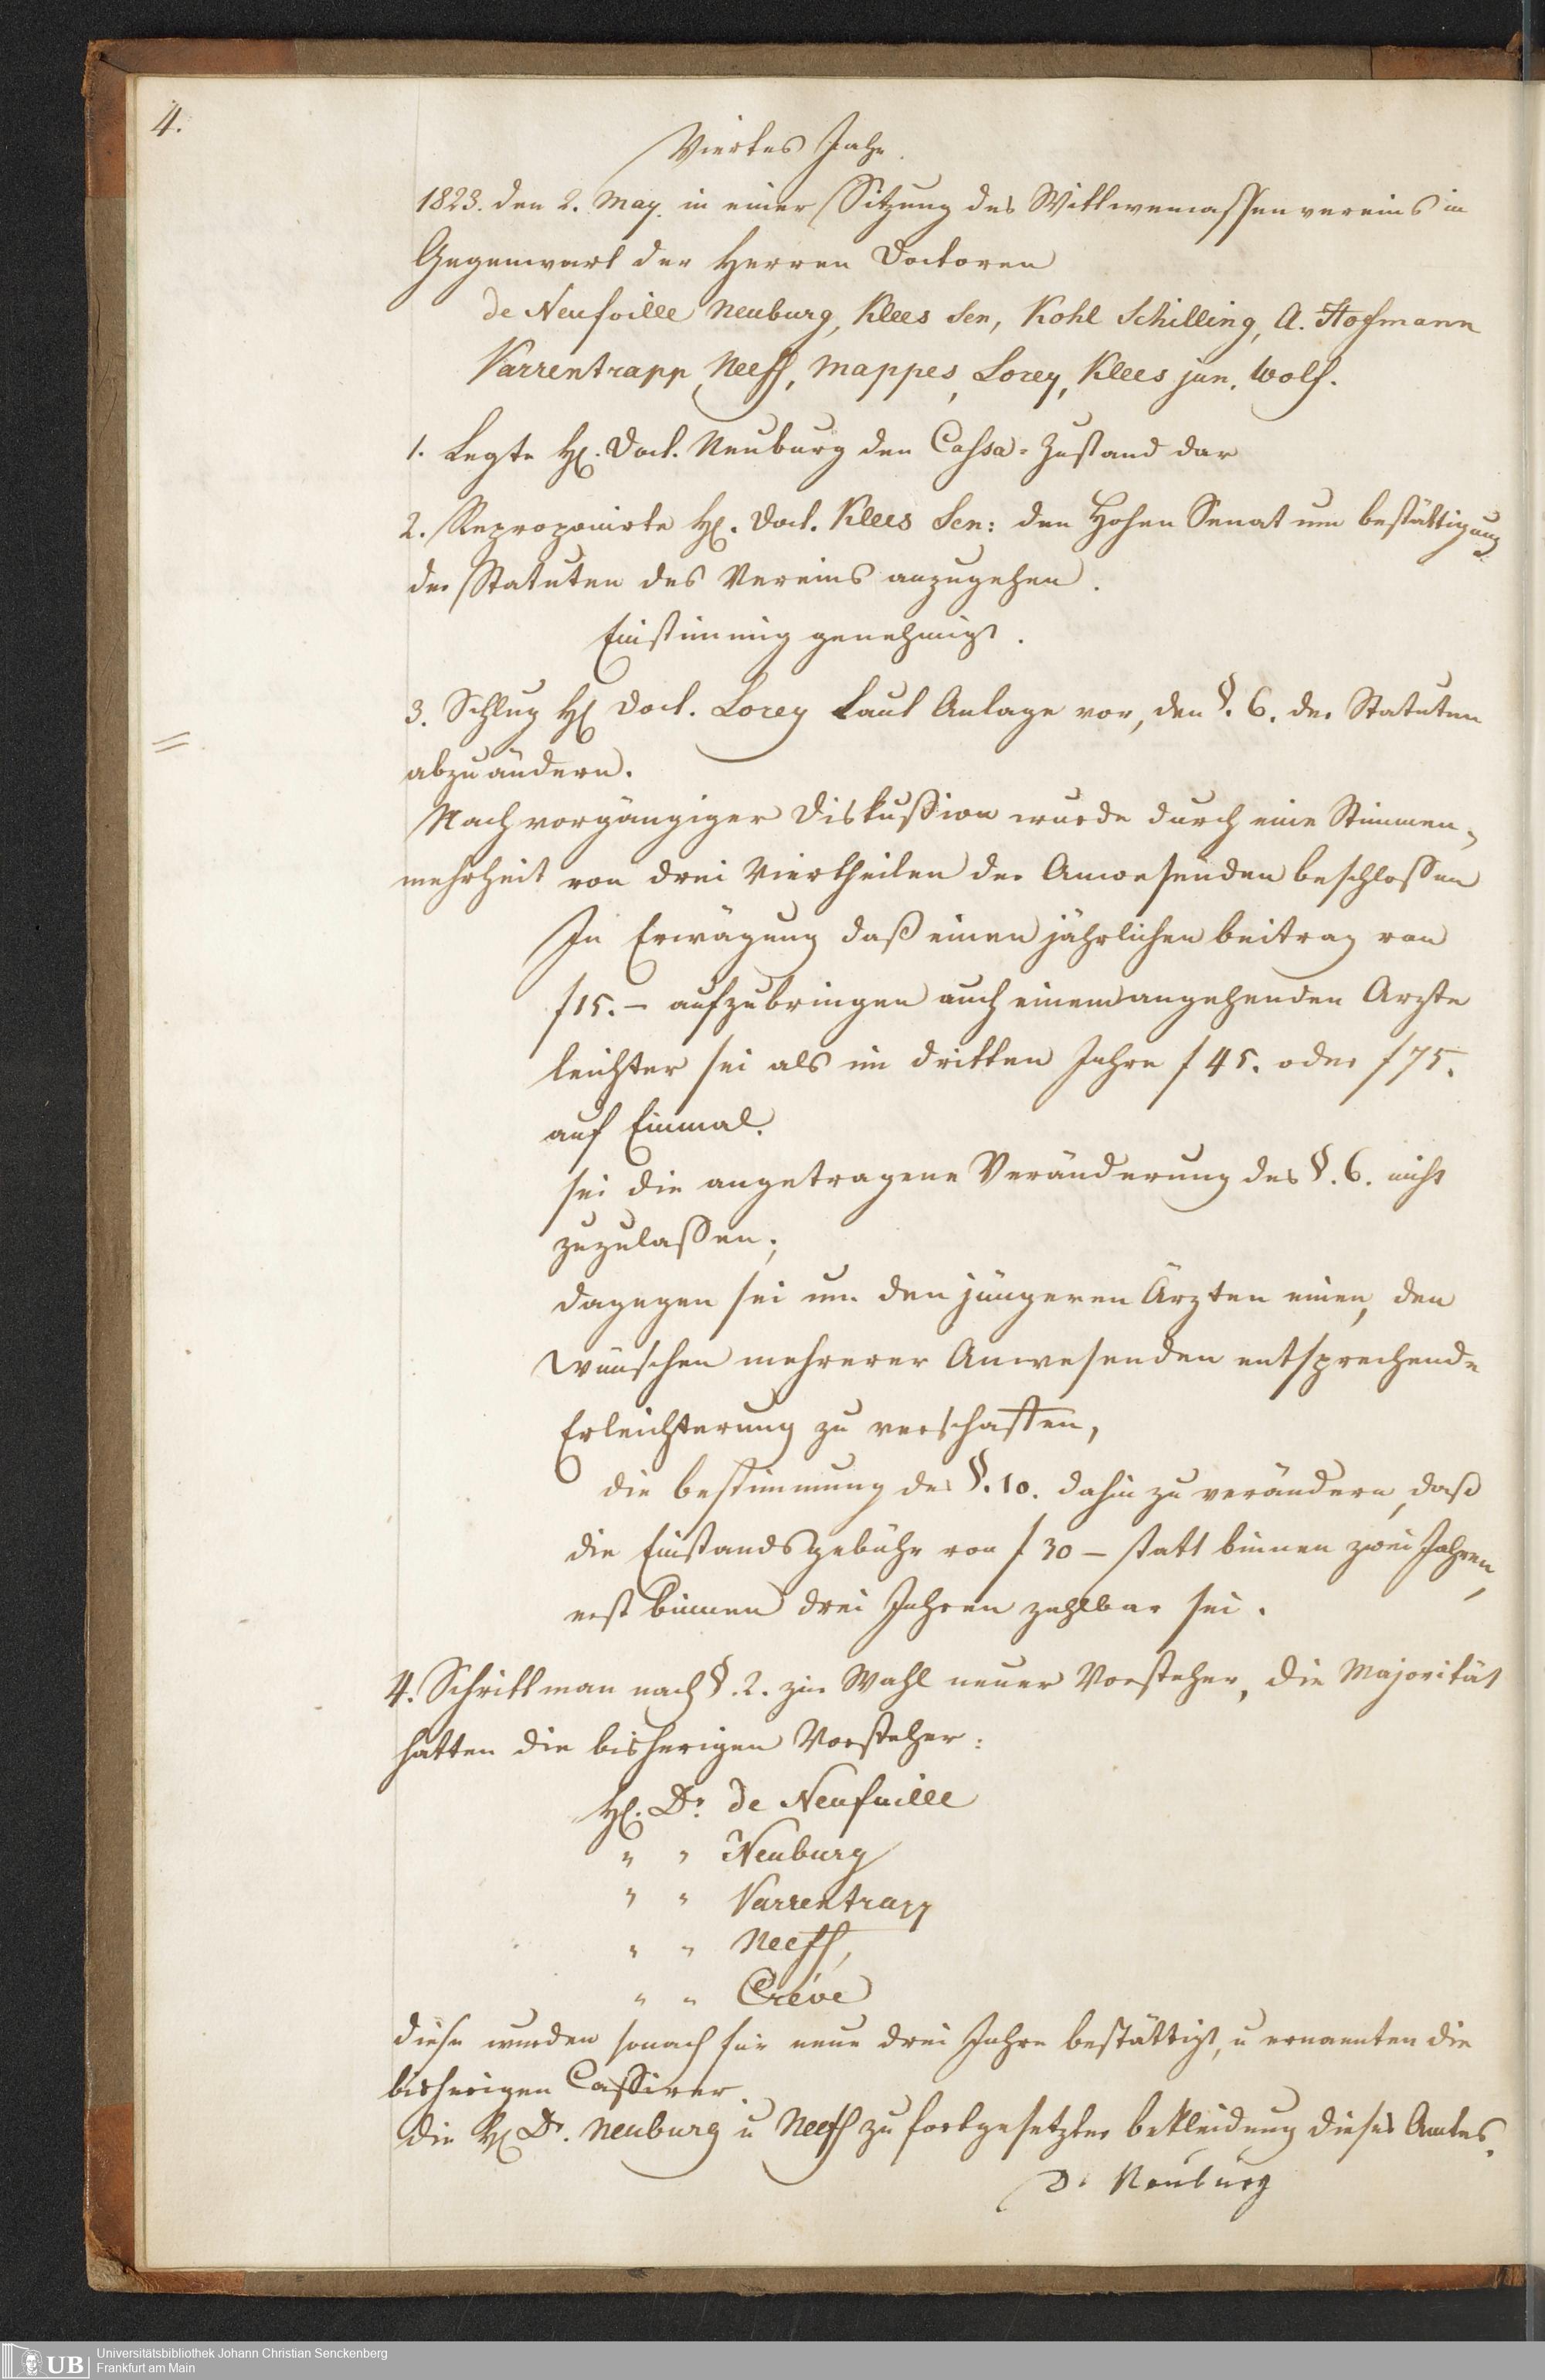 4.
Viertes Jahr.
1823. den 2. May. in einer Sitzung des Wittwencassenvereins in
Gegenwart der Herren Doctoren
de Neufville Neuburg, Klees Sen, Kohl Schilling, A. Hofmann
Varrentrapp, Neeff, Mappes, Lorey, Klees jun. Wolf.
1. Legte H. Doct. Neuburg den Cassa-Zustand dar
2. Reproponirte H. Doct. Klees Sen: den Hohen Senat um bestättigung
der Statuten des Vereins anzugehen.
Einstimmig genehmigt.
3. Schlug H Doct. Lorey Laut Anlage vor, den §. 6. der Statuten
abzuändern.
Nach vorgängiger Diskussion wurde durch eine Stimmen-
mehrheit von drei Viertheilen der Anwesenden beschlossen
In Erwägung daß einen jährlichen beitrag von
f 15. – aufzubringen auch einem angehenden Arzte
leichter sei als im dritten Jahre f 45. oder f 75.
auf Einmal.
sei die angetragene Veränderung des §. 6. nicht
zuzulassen;
dagegen sei um den jüngeren Ärzten eine, den
Wünschen mehrerer Anwesenden entsprechende
Erleichterung zu verschaffen,
die bestimmung des §. 10. dahin zu verändern, daß
die Einstandsgebühr von f 30 – statt binnen zwei Jahren,
erst binnen drei Jahren zahlbar sei.
4. Schritt man nach §. 2. zur Wahl neuer Vorsteher, die Majorität
hatten die bisherigen Vorsteher:
H. Dr. de Neufville
" " Neuburg
" " Varrentrapp
" " Neeff,
" " Crève
diese wurden sonach für neue drei Jahre bestättigt, u ernannten die
bisherigen Cassirer.
die H Dr. Neuburg u Neeff zu fortgesetzter bekleidung dieses Amtes.
Dr Neuburg
UB
Universitätsbibliothek Johann Christian Senckenberg
Frankfurt am Main